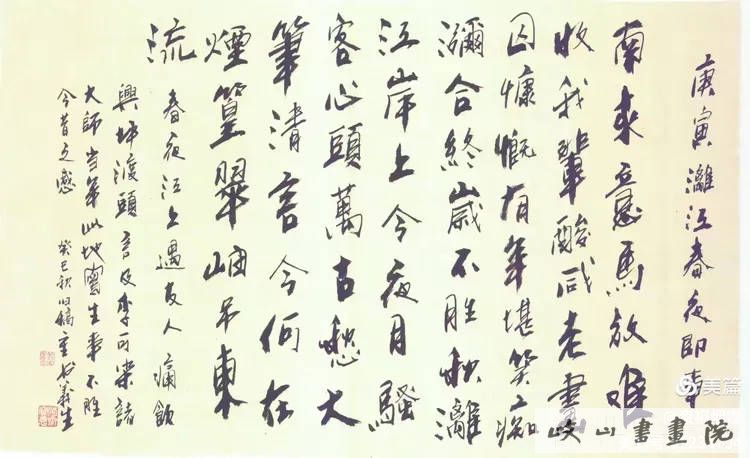 庚寅灕江春夜即事
南來意馬放難
收我輩酸咸老畫
囚慷慨有年堪笑痴
瀰合終歲不勝秋灕
江岸上今夜月騷
客心頭萬古愁大
筆清言今何在
煙篁翠岫吊東
流 春夜江上遇友人痛飲
興坪渡頭言及李可染諸
大師當年此地寫生事不勝
今昔之感 癸巳秋旧稿重书義生
美篇
岐山書畫院